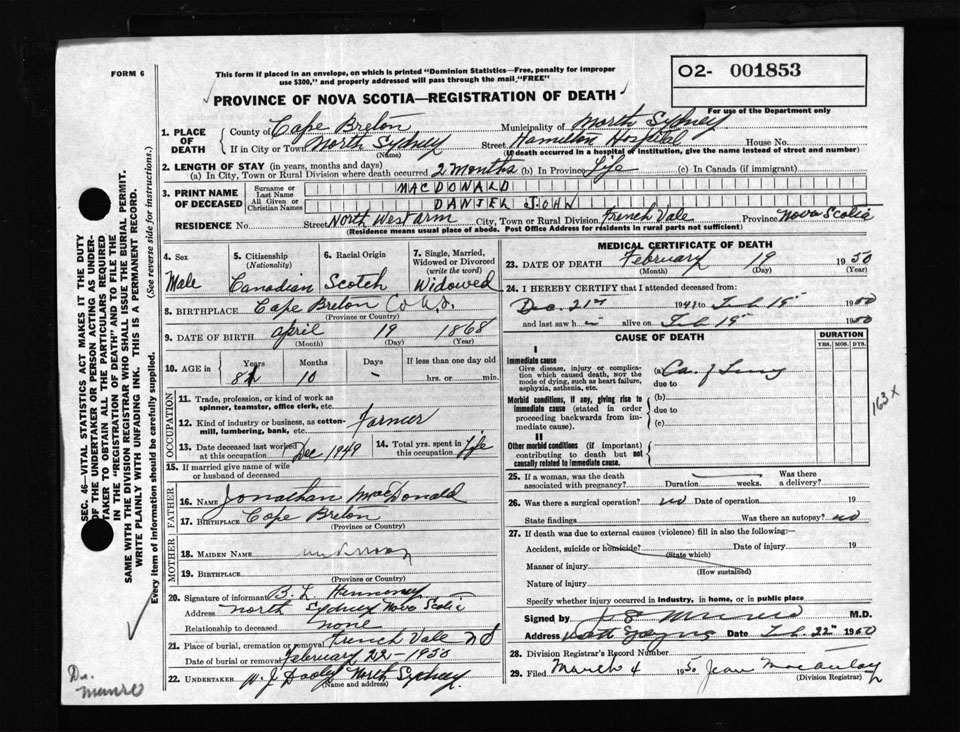 FORM 6
This form if placed in an envelope, on which is printed "Dominion Statistics—Free, penalty for improper
use $300," and properly addressed will pass through the mail, "FREE"
PROVINCE OF NOVA SCOTIA—REGISTRATION OF DEATH
O2- 001853
For use of the Department only
1. PLACE OF DEATH
County of Cape Breton Municipality of North Sydney
If in City or Town North Sydney Street Hamilton Hospital House No.
(Name) (If death occurred in a hospital of institution, give the name instead of street and number)
2. LENGTH OF STAY (in years, months and days)
(a) In City, Town or Rural Division where death occurred 2 months (b) In Province Life (c) In Canada (if immigrant)
3. PRINT NAME OF DECEASED
Surname or Last Name MACDONALD
All Given or Christian Names DANIEL JOHN
RESIDENCE No. Street North West arm City, Town or Rural Division French Vale Province Nova Scotia
(Residence means usual place of abode. Post Office Address for residents in rural parts not sufficient)
4. Sex
Male
5. Citizenship
(Nationality)
Canadian
6. Racial Origin
Scotch
7. Single, Married,
Widowed or Divorced
(write the word)
Widowed
8. BIRTHPLACE Cape Breton Co N.S.
(Province or Country)
9. DATE OF BIRTH April 19 1868
(Month) (Day) (Year)
10. AGE in
Years Months Days If less than one day old
10 – hrs. or min.
OCCUPATION
11. Trade, profession, or kind of work as
spinner, teamster, office clerk, etc.
12. Kind of industry or business, as cotton-
mill, lumbering, bank, etc. Farmer
13. Date deceased last worked
at this occupation Dec 1949
14. Total yrs. spent in
this occupation Life
15. If married give name of wife
or husband of deceased
FATHER
16. NAME Jonathan MacDonald
17. BIRTHPLACE Cape Breton
(Province or Country)
MOTHER
18. MAIDEN NAME
19. BIRTHPLACE
(Province or Country)
20. Signature of informant B. L. Hennessy
Address North Sydney Nova Scotia
Relationship to deceased none
21. Place of burial, cremation or removal French Vale N S
Date of burial or removal February 22 - 1950
22. UNDERTAKER W. J. Dooley North Sydney
(Name and address)
MEDICAL CERTIFICATE OF DEATH
23. DATE OF DEATH February 19 1950
(Month) (Day) (Year)
24. I HEREBY CERTIFY that I attended deceased from:
Dec. 21st 194 to Feb 19 1950
and last saw h alive on Feb 19 1950
CAUSE OF DEATH
DURATION
YRS. MOS. DYS.
I
Immediate cause
Give disease, injury or complica-
tion which caused death, not the
mode of dying, such as heart failure,
asphyxia, asthenia, etc.
(a) Ca. of Lung
due to
Morbid conditions, if any, giving rise to
immediate cause (stated in order
proceeding backwards from im-
mediate cause).
(b)
due to
(c)
II
Other morbid conditions (if important)
contributing to death but not
causally related to immediate cause.
163 x
25. If a woman, was the death
associated with pregnancy? Duration weeks. Was there
a delivery?
26. Was there a surgical operation? no Date of operation 19
State findings Was there an autopsy? no
27. If death was due to external causes (violence) fill in also the following:
Accident, suicide or homicide? Date of injury 19
(State which)
Manner of injury
(How sustained)
Nature of injury
Specify whether injury occurred in industry, in home, or in public place
Signed by Munro M.D.
Address North Sydney Date Feb. 22 1950
28. Division Registrar's Record Number
29. Filed March 4 1950 Jean MacAulay
(Division Registrar)
SEC. 46—VITAL STATISTICS ACT MAKES IT THE DUTY
OF THE UNDERTAKER OR PERSON ACTING AS UNDER-
TAKER TO OBTAIN ALL THE PARTICULARS REQUIRED
IN THE "REGISTRATION OF DEATH" AND TO FILE THE
SAME WITH THE DIVISION REGISTRAR WHO SHALL ISSUE THE BURIAL PERMIT.
WRITE PLAINLY WITH UNFADING INK. THIS IS A PERMANENT RECORD.
Every item of information should be carefully supplied. (See reverse side for instructions.)
Dr.
Munro